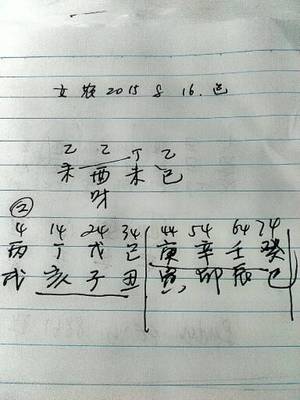 女孩 2015 8 16. 巳
乙 乙 丁 乙
未 酉 未 巳
财
②
4 14 24 34 44 54 64 74
丙 丁 戊 己 庚 辛 壬 癸
戌 亥 子 丑 寅 卯 辰 巳